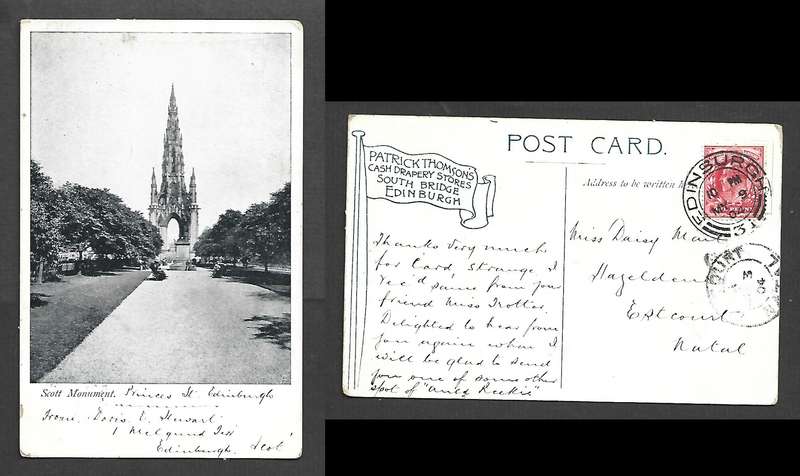 Scott Monument. Princes St. Edinburgh
From. Doris E. Stewart
1 Melgund Terr
Edinburgh. Scot'
POST CARD.
PATRICK THOMSON'S
CASH DRAPERY STORES
SOUTH BRIDGE
EDINBURGH
Address to be written
EDINBURGH
Thanks very much
for Card, strange I
rec'd same from your
friend Miss Trotter.
Delighted to hear from
you again when I
will be glad to send
you one of some other
spot of "Auld Reekie"
Miss Daisy
Hazeldene
Estcourt
Natal